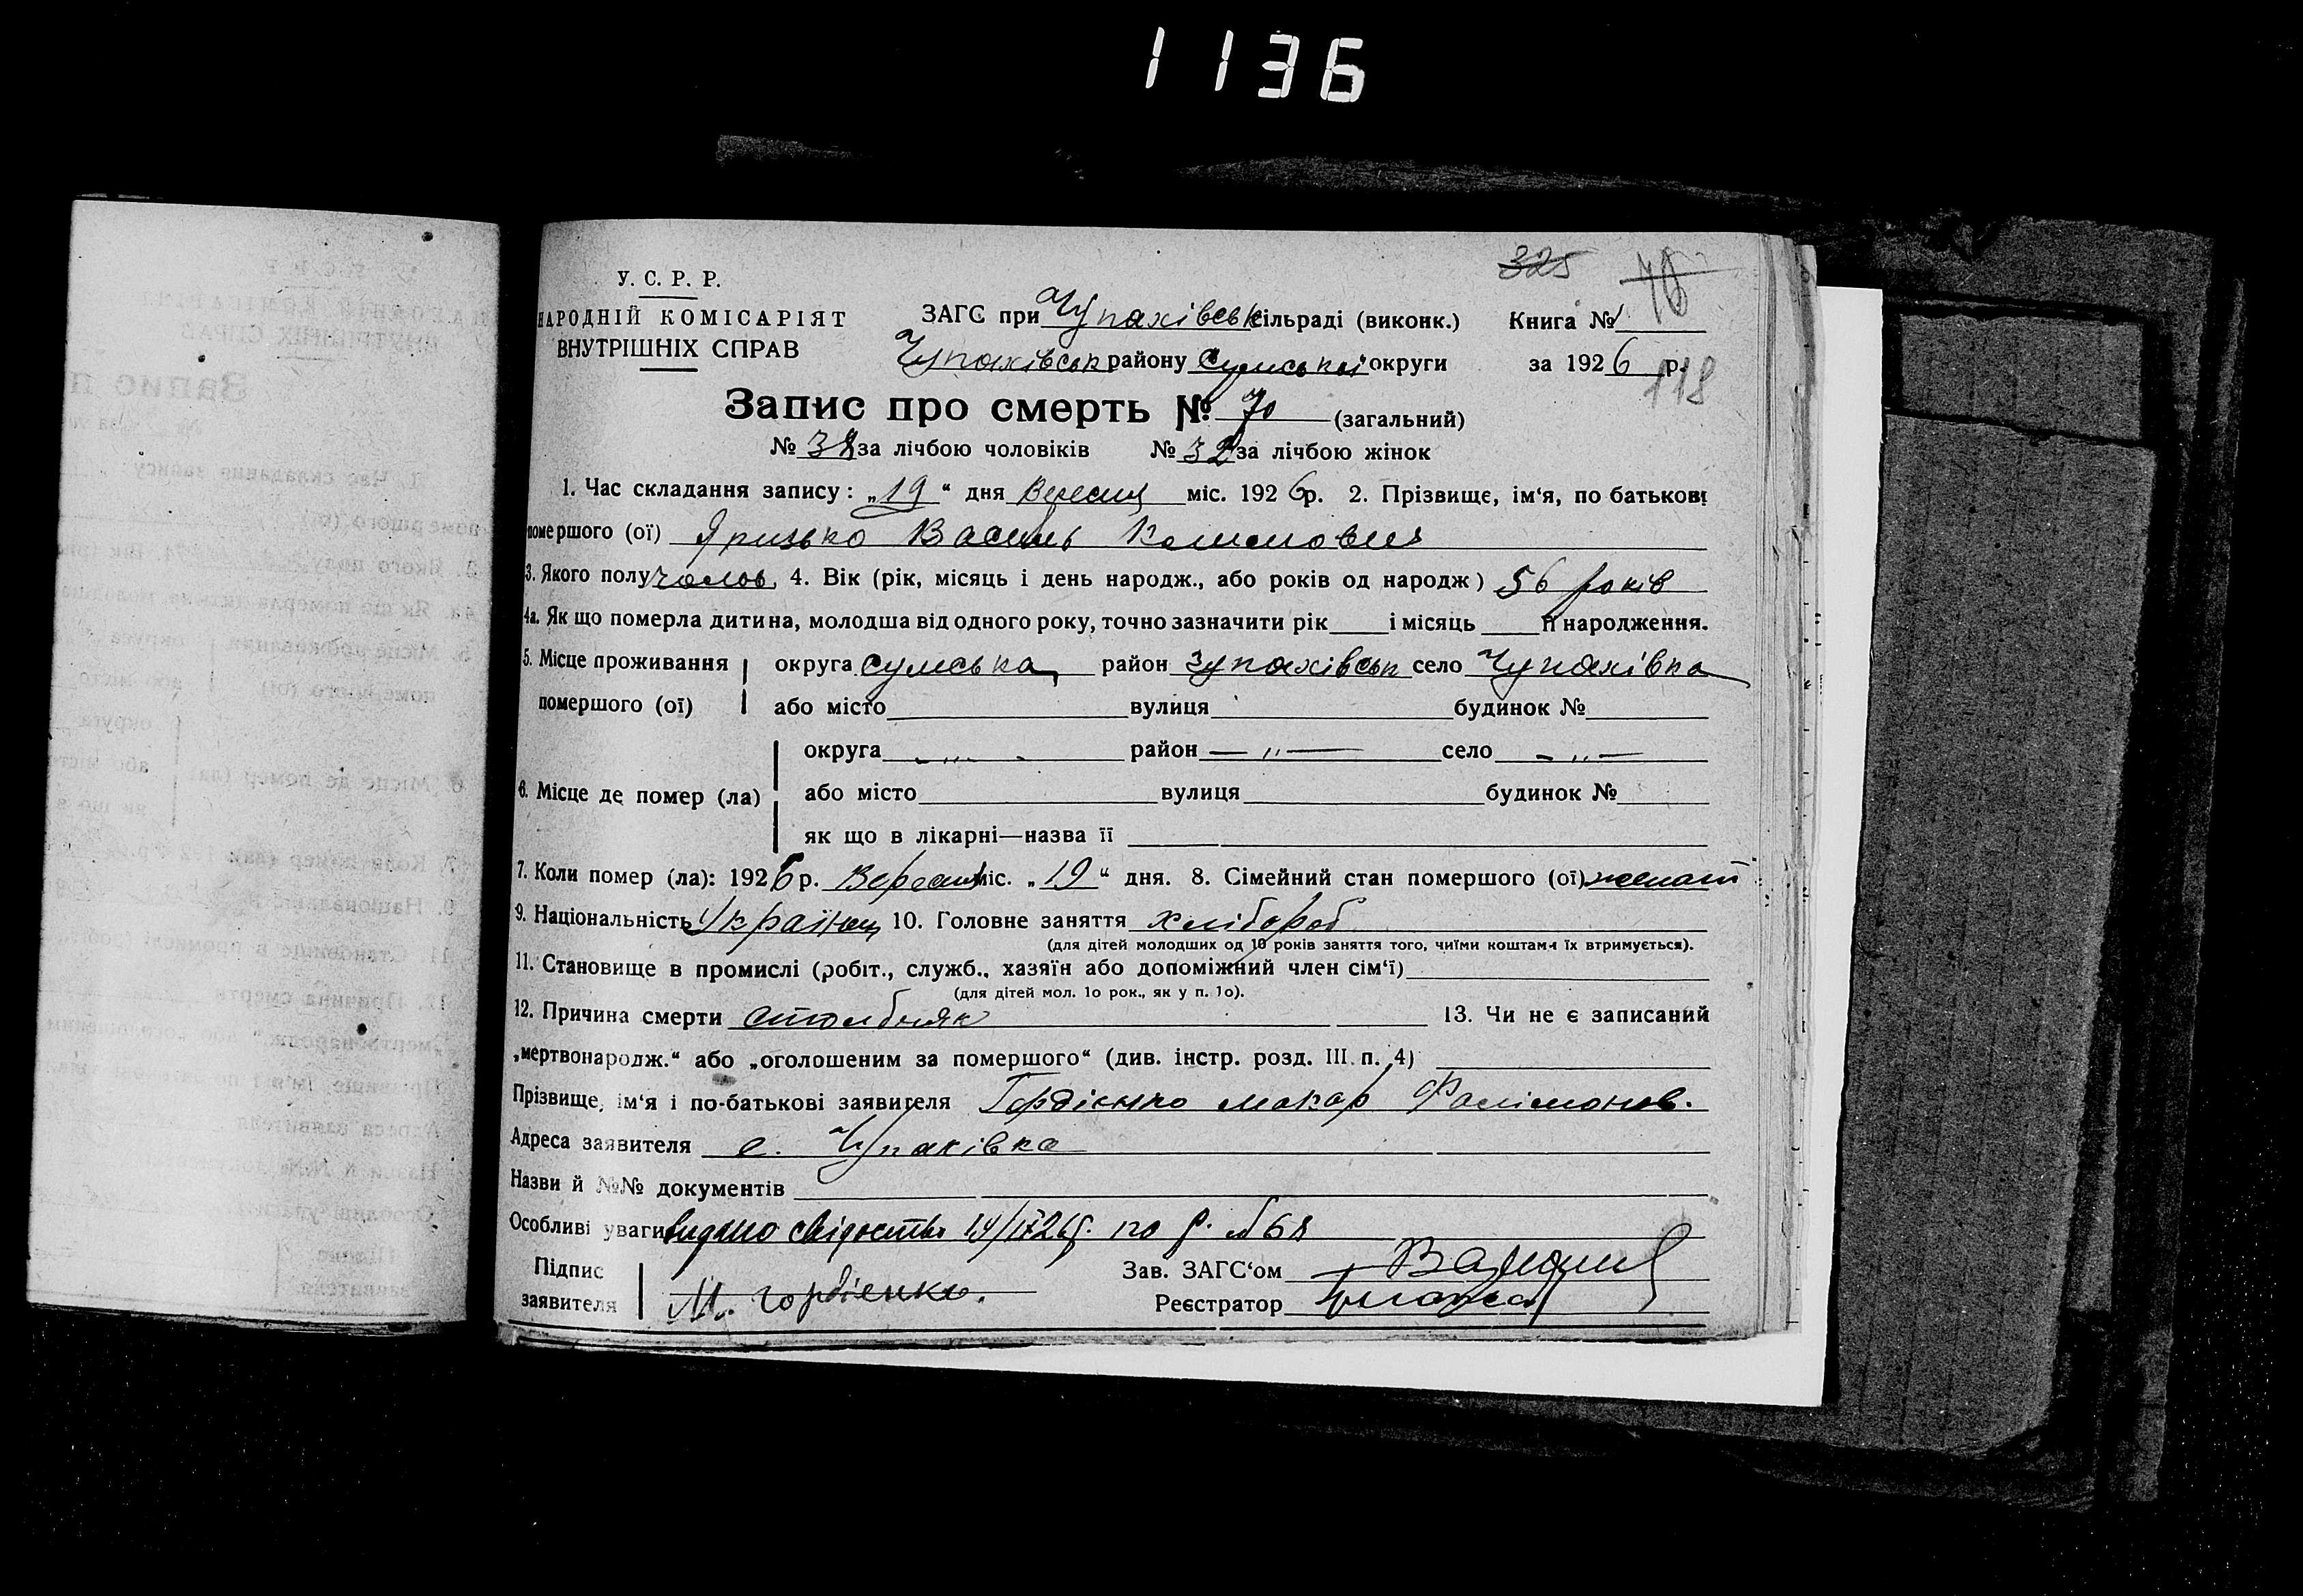 1136
325
У. С. Р. Р.
НАРОДНІЙ КОМІСАРІЯТ
ВНУТРІШНІХ СПРАВ
ЗАГС при Чупахівськ сільраді (виконк.) Книга №
Чупахівськ району Сумської округи за 1926 р.
118
Запис про смерть № 70 (загальний)
№ 38 за лічбою чоловіків № 32 за лічбою жінок
1. Час складання запису: „19“ дня Вересня міс. 1926 р. 2. Прізвище, ім‘я, по батькові
помершого (ої) Василь
3. Якого полу чолов. 4. Вік (рік, місяць і день народж., або років од народж) 56 років
4а. Як що померла дитина, молодша від одного року, точно зазначити рік і місяць її народження.
5. Місце проживання округа Сумська район Чупахівськ село Чупахівка
помершого (ої) або місто вулиця будинок №
округа — „ — район — „ — село — „ —
6. Місце де помер (ла) або місто вулиця будинок №
як що в лікарні—назва її
7. Коли помер (ла): 1926 р. Вересня міс. „19“ дня. 8. Сімейний стан помершого (ої) женат
9. Національність Українец 10. Головне заняття хлібороб
(для дітей молодших од 10 років заняття того, чиїми коштами їх втримується).
11. Становище в промислі (робіт., служб., хазяїн або допоміжний член сім‘ї)
(для дітей мол. 1о рок., як у п. 1о).
12. Причина смерти столбняк 13. Чи не є записаний
„мертвонародж.“ або „оголошеним за помершого“ (див. інстр. розд. III п. 4)
Прізвище, ім‘я і по-батькові заявителя Гордієнко Макар Филимонов.
Адреса заявителя с. Чупахівка
Назви й №№ документів
Особливі уваги видано свідоцтво по р. № 68
Підпис
заявителя М. Гордієнко.
Зав. ЗАГС‘ом
Реєстратор